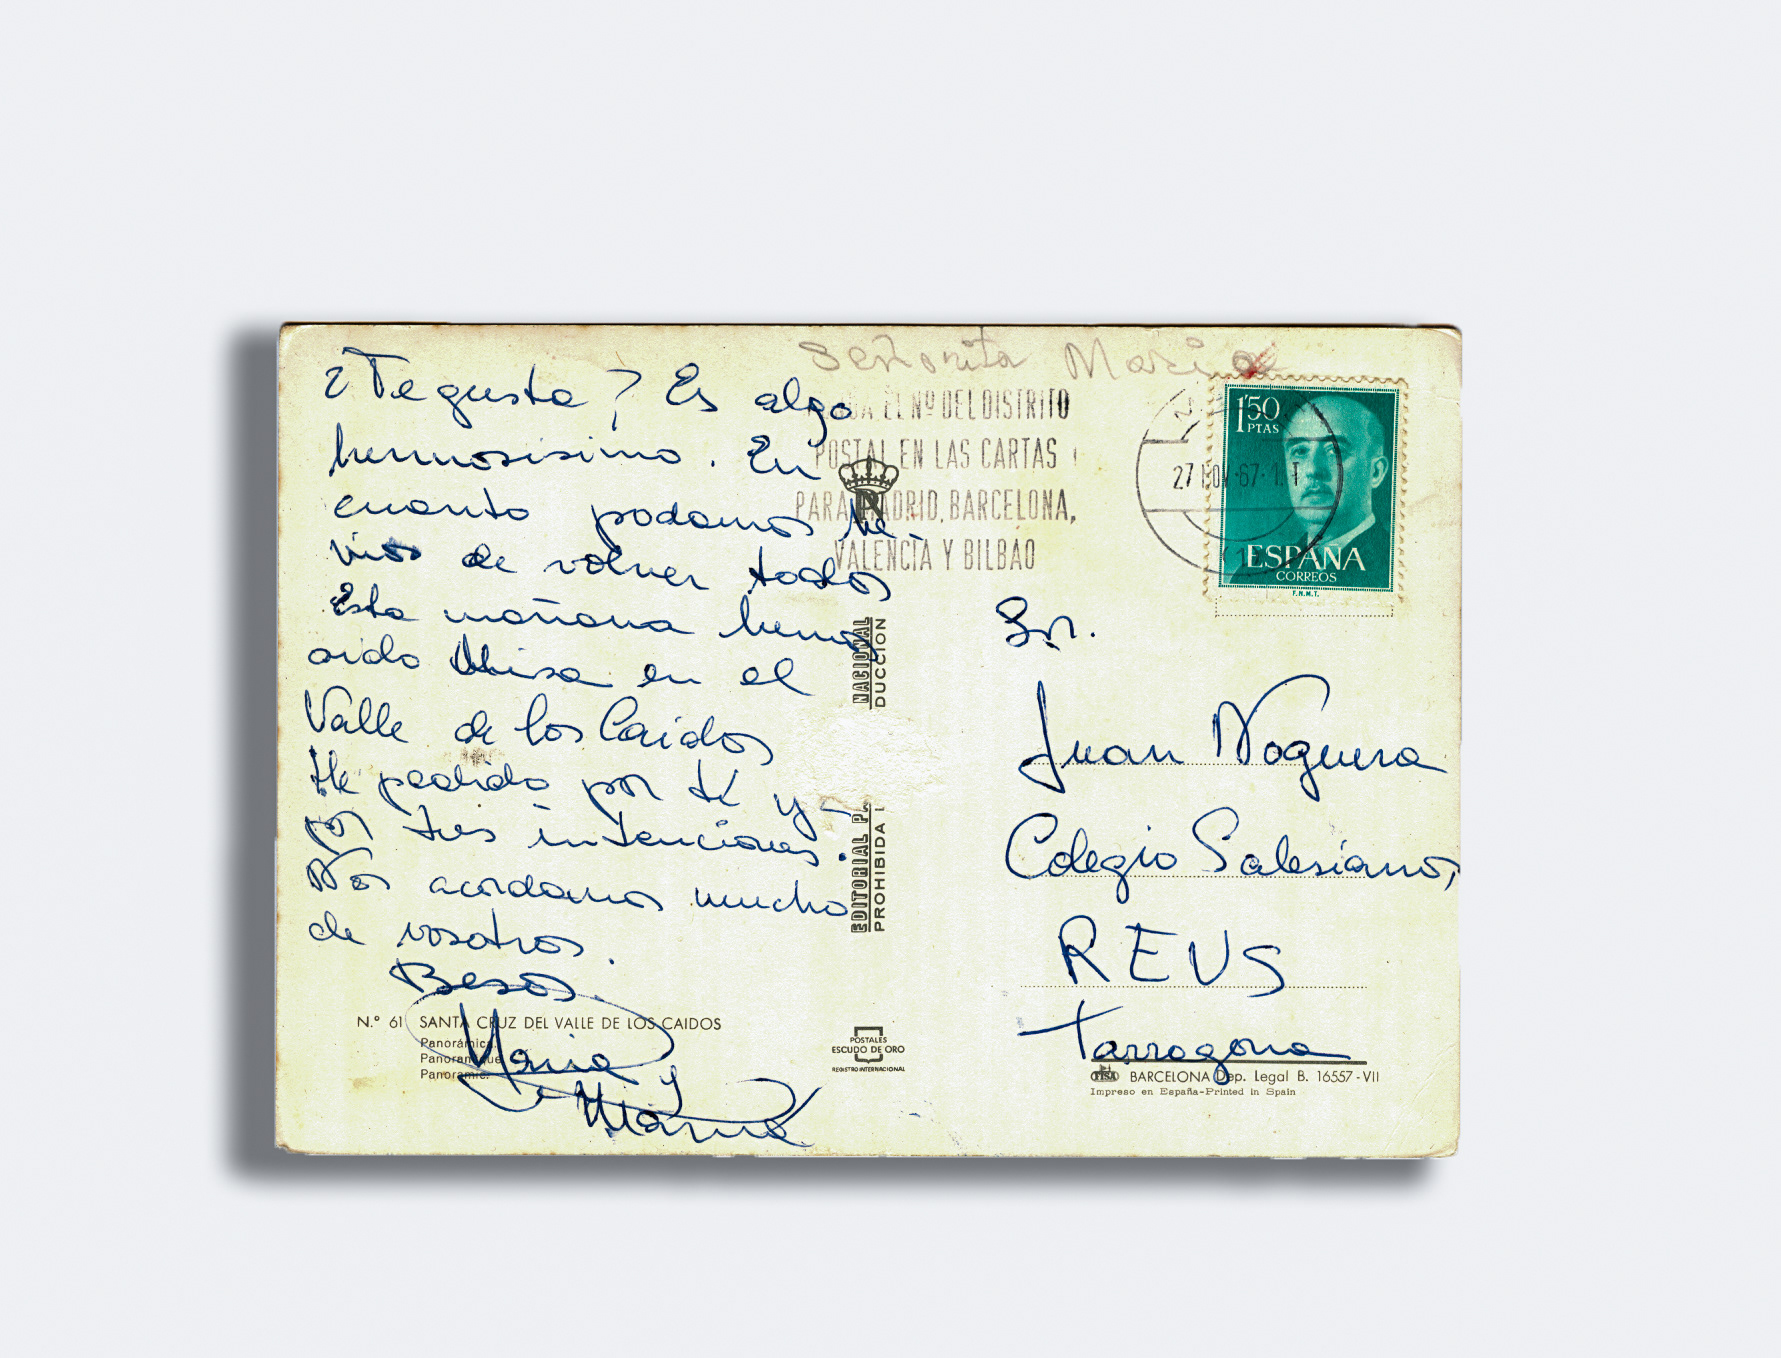 ¿Te gusta? Es algo
hermosisimo. En
cuanto podamos he-
mos de volver todos
Esta mañana hemos
oido Misa en el
Valle de los Caidos
He pedido por tí y
por tus intenciones.
Nos acordamos mucho
de vosotros.
Besos.
Maria y
Mamá
N.º 61 SANTA CRUZ DEL VALLE DE LOS CAIDOS
Panorámica.
Panoramique
Panoramic.
EDITORIAL NACIONAL
PROHIBIDA DUCCION
POSTALES
ESCUDO DE ORO
REGISTRO INTERNACIONAL
Señorita Maria
EL Nº DEL DISTRITO
POSTAL EN LAS CARTAS
PARA MADRID, BARCELONA,
VALENCIA Y BILBAO
27 NOV 67
1'50
PTAS
ESPAÑA
CORREOS
F.N.M.T.
Sr.
Juan Noguera
Colegio Salesianos,
REUS
Tarragona
FISA BARCELONA Dep. Legal B. 16557-VII
Impreso en España-Printed in Spain